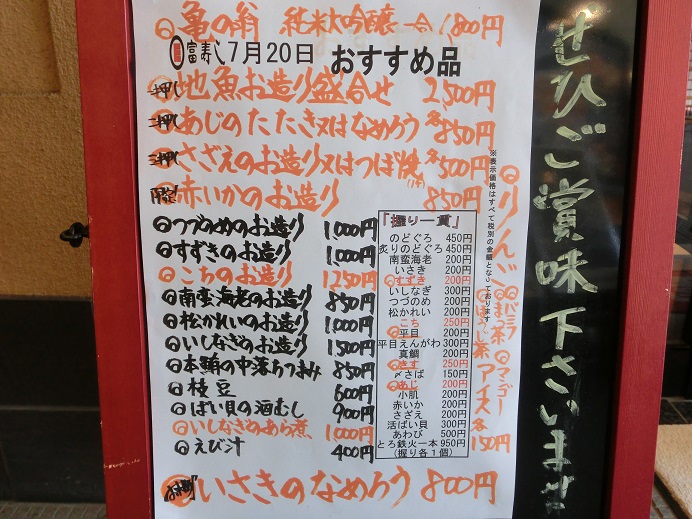 亀の翁 純米大吟醸 一合 1800円
富寿し 7月20日 おすすめ品
一押し 地魚お造り盛合せ 2,500円
二押し あじのたたき又はなめろう 各850円
三押し さざえのお造り又はつぼ焼(1ケ) 各500円
限定! 赤いかのお造り 850円
つづのめのお造り 1,000円
すずきのお造り 1,000円
こちのお造り 1250円
南蛮海老のお造り 850円
松かれいのお造り 1,000円
いしなぎのお造り 1500円
本鮪の中落ちつまみ 850円
枝豆 600円
ばい貝の酒むし 900円
いしなぎのあら煮 1,000円
えび汁 400円
いさきのなめろう 800円
『握り一貫』
のどぐろ 450円
炙りのどぐろ 450円
南蛮海老 200円
いさき 200円
すずき 200円
いしなぎ 300円
つづのめ 200円
松かれい 200円
こち 250円
平目 200円
平目えんがわ 300円
真鯛 200円
きす 250円
〆さば 150円
あじ 200円
小肌 200円
赤いか 200円
さざえ 200円
活ばい貝 300円
あわび 500円
とろ鉄火一本 950円
(握り各1個)
※表示価格はすべて税別の金額となっております
りんご
バニラ
まっ茶
マンゴー
ほうじ茶
アイス各150円
ぜひご賞味下さいませ